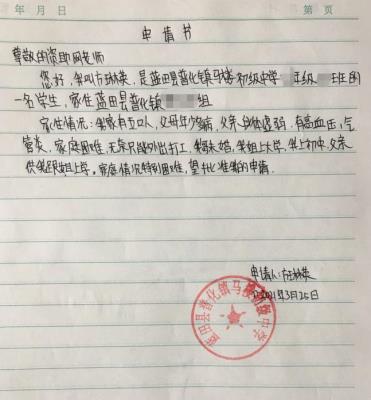 年 月 日 第 页
申请书
尊敬的资助网老师
您好，我叫，是蓝田县普化镇马楼初级中学 年级 班的
一名学生，家住蓝田县普化镇 组
家庭情况：我家有五口人，父母年病，父亲身体虚弱，有高血压，气
管炎，家庭困难，无奈只能外出打工，我哥未婚，我姐上大学，我上初中，父亲
供我跟姐上学。家庭情况特别困难，望批准我的申请
申请人：
2021年3月25日
蓝田县普化镇马楼初级中学